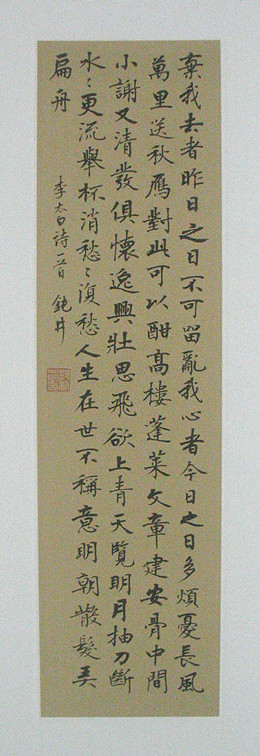 棄我去者昨日之日不可留亂我心者今日之日多煩憂長風
萬里送秋鴈對此可以酣高樓蓬萊文章建安骨中間
小謝又清發俱懷逸興壯思飛欲上青天覽明月抽刀斷
水〻更流舉杯消愁〻復愁人生在世不稱意明朝散髮弄
扁舟 李太白詩一首